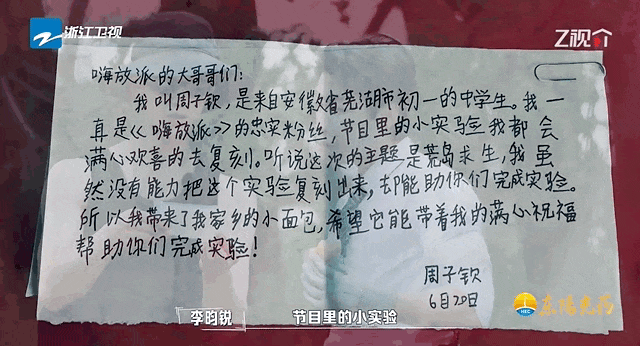 浙江卫视
Z视介
嗨放派的大哥哥们：
我叫周子钦，是来自安徽省芜湖市初一的中学生。我一
真是《嗨放派》的忠实粉丝，节目里的小实验我都会
满心欢喜的去复刻。听说这次的主题是荒岛求生，我虽
然没有能力把这个实验复刻出来，却能助你们完成实验。
所以我带来了我家乡的小面包，希望它能带着我的满心祝福
帮助你们完成实验！
周子钦
6月20日
HEC
李昀锐
节目里的小实验